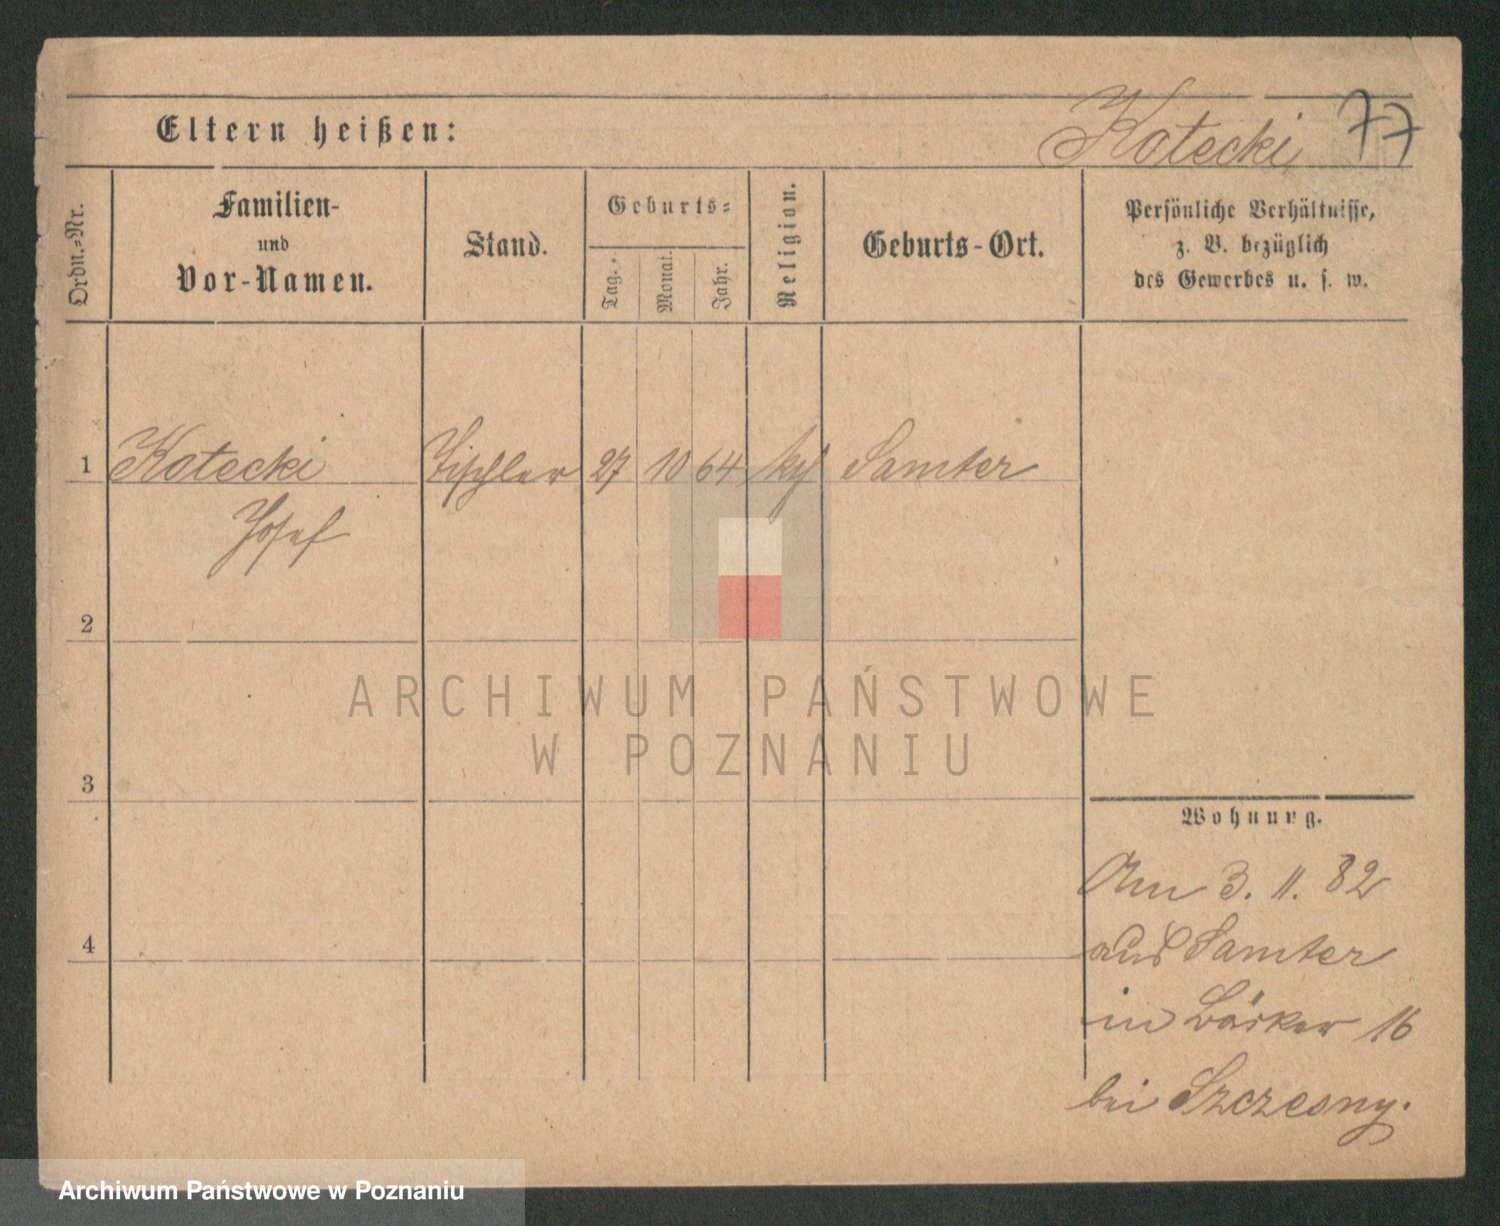 Eltern heißen:
Kotecki 77
Ordn.-Nr.
Familien-
und
Vor-Namen.
Stand.
Geburts-
Tag.
Monat.
Jahr.
Religion.
Geburts-Ort.
Persönliche Verhältnisse,
z. B. bezüglich
des Gewerbes u. s. w.
1 Kotecki Tischler 27 10 64 kth Samter
Josef
2
ARCHIWUM PAŃSTWOWE
W POZNANIU
3
Wohnung.
Am 3. 11. 82
4
aus Samter
in Bäcker 16
bei Szczesny.
Archiwum Państwowe w Poznaniu